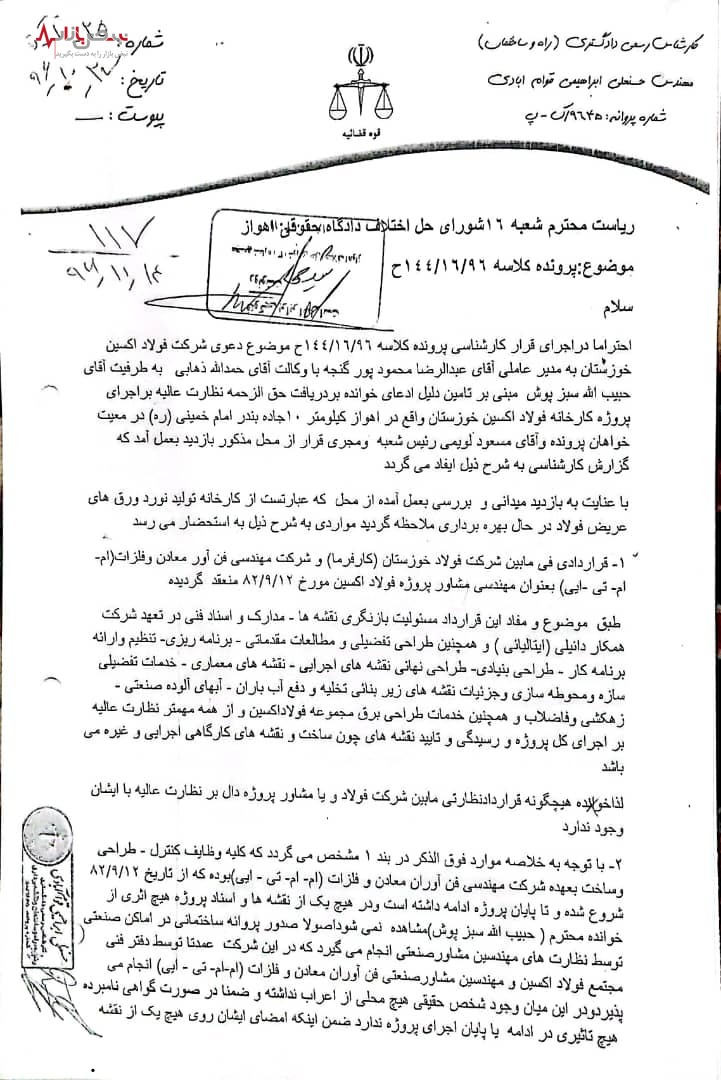 کارشناس رسمی دادگستری (راه و ساختمان)
مهندس حسنعلی ابراهیمی قوام ابادی
شماره پروانه: ۹۶۴۵
قوه قضائیه
شماره:
تاریخ: ۹۶،۱۰،۳۰
پیوست: ــ
نبض بازار
نبض بازار را به دست بگیرید
۱۱۷
۹۶،۱۱،۱۴
ریاست محترم شعبه ۱۶شورای حل اختلاف دادگاه حقوقی اهواز
موضوع:پرونده کلاسه ۱۴۴/۱۶/۹۶ح
سلام
احتراما دراجرای قرار کارشناسی پرونده کلاسه ۱۴۴/۱۶/۹۶ح موضوع دعوی شرکت فولاد اکسین
خوزستان به مدیر عاملی آقای عبدالرضا محمود پور گنجه با وکالت آقای حمدالله ذهابی به طرفیت آقای
حبیب الله سبز پوش مبنی بر تامین دلیل ادعای خوانده بردریافت حق الزحمه نظارت عالیه براجرای
پروژه کارخانه فولاد اکسین خوزستان واقع در اهواز کیلومتر ۱۰جاده بندر امام خمینی (ره) در معیت
خواهان پرونده وآقای مسعود لویمی رئیس شعبه ومجری قرار از محل مذکور بازدید بعمل آمد که
گزارش کارشناسی به شرح ذیل ایفاد می گردد
با عنایت به بازدید میدانی و بررسی بعمل آمده از محل که عبارتست از کارخانه تولید نورد ورق های
عریض فولاد در حال بهره برداری ملاحظه گردید مواردی به شرح ذیل به استحضار می رسد
۱- قراردادی فی مابین شرکت فولاد خوزستان (کارفرما) و شرکت مهندسی فن آور معادن وفلزات(ام-
ام- تی -ایی) بعنوان مهندسی مشاور پروژه فولاد اکسین مورخ ۸۲/۹/۱۲ منعقد گردیده
طبق موضوع و مفاد این قرارداد مسئولیت بازنگری نقشه ها - مدارک و اسناد فنی در تعهد شرکت
همکار دانیلی (ایتالیائی ) و همچنین طراحی تفضیلی و مطالعات مقدماتی - برنامه ریزی- تنظیم وارائه
برنامه کار - طراحی بنیادی- طراحی نهائی نقشه های اجرایی - نقشه های معماری - خدمات تفضیلی
سازه ومحوطه سازی وجزئیات نقشه های زیر بنائی تخلیه و دفع آب باران - آبهای آلوده صنعتی -
زهکشی وفاضلاب و همچنین خدمات طراحی برق مجموعه فولاداکسین و از همه مهمتر نظارت عالیه
بر اجرای کل پروژه و رسیدگی و تایید نقشه های چون ساخت و نقشه های کارگاهی اجرایی و غیره می
باشد
لذاخوانده هیچگونه قراردادنظارتی مابین شرکت فولاد و یا مشاور پروژه دال بر نظارت عالیه با ایشان
وجود ندارد
۲- با توجه به خلاصه موارد فوق الذکر در بند ۱ مشخص می گردد که کلیه وظایف کنترل - طراحی
وساخت بعهده شرکت مهندسی فن آوران معادن و فلزات (ام- ام- تی - ایی)بوده که از تاریخ ۸۲/۹/۱۲
شروع شده و تا پایان پروژه ادامه داشته است ودر هیچ یک از نقشه ها و اسناد پروژه هیچ اثری از
خوانده محترم ( حبیب الله سبز پوش)مشاهده نمی شوداصولا صدور پروانه ساختمانی در اماکن صنعتی
توسط نظارت های مهندسین مشاورصنعتی انجام می گیرد که در این شرکت عمدتا توسط دفتر فنی
مجتمع فولاد اکسین و مهندسین مشاورصنعتی فن آوران معادن و فلزات (ام-ام- تی - ایی) انجام می
پذیردودر این میان وجود شخص حقیقی هیچ محلی از اعراب نداشته و ضمنا در صورت گواهی نامبرده
هیچ تاثیری در ادامه یا پایان اجرای پروژه ندارد ضمن اینکه امضای ایشان روی هیچ یک از نقشه